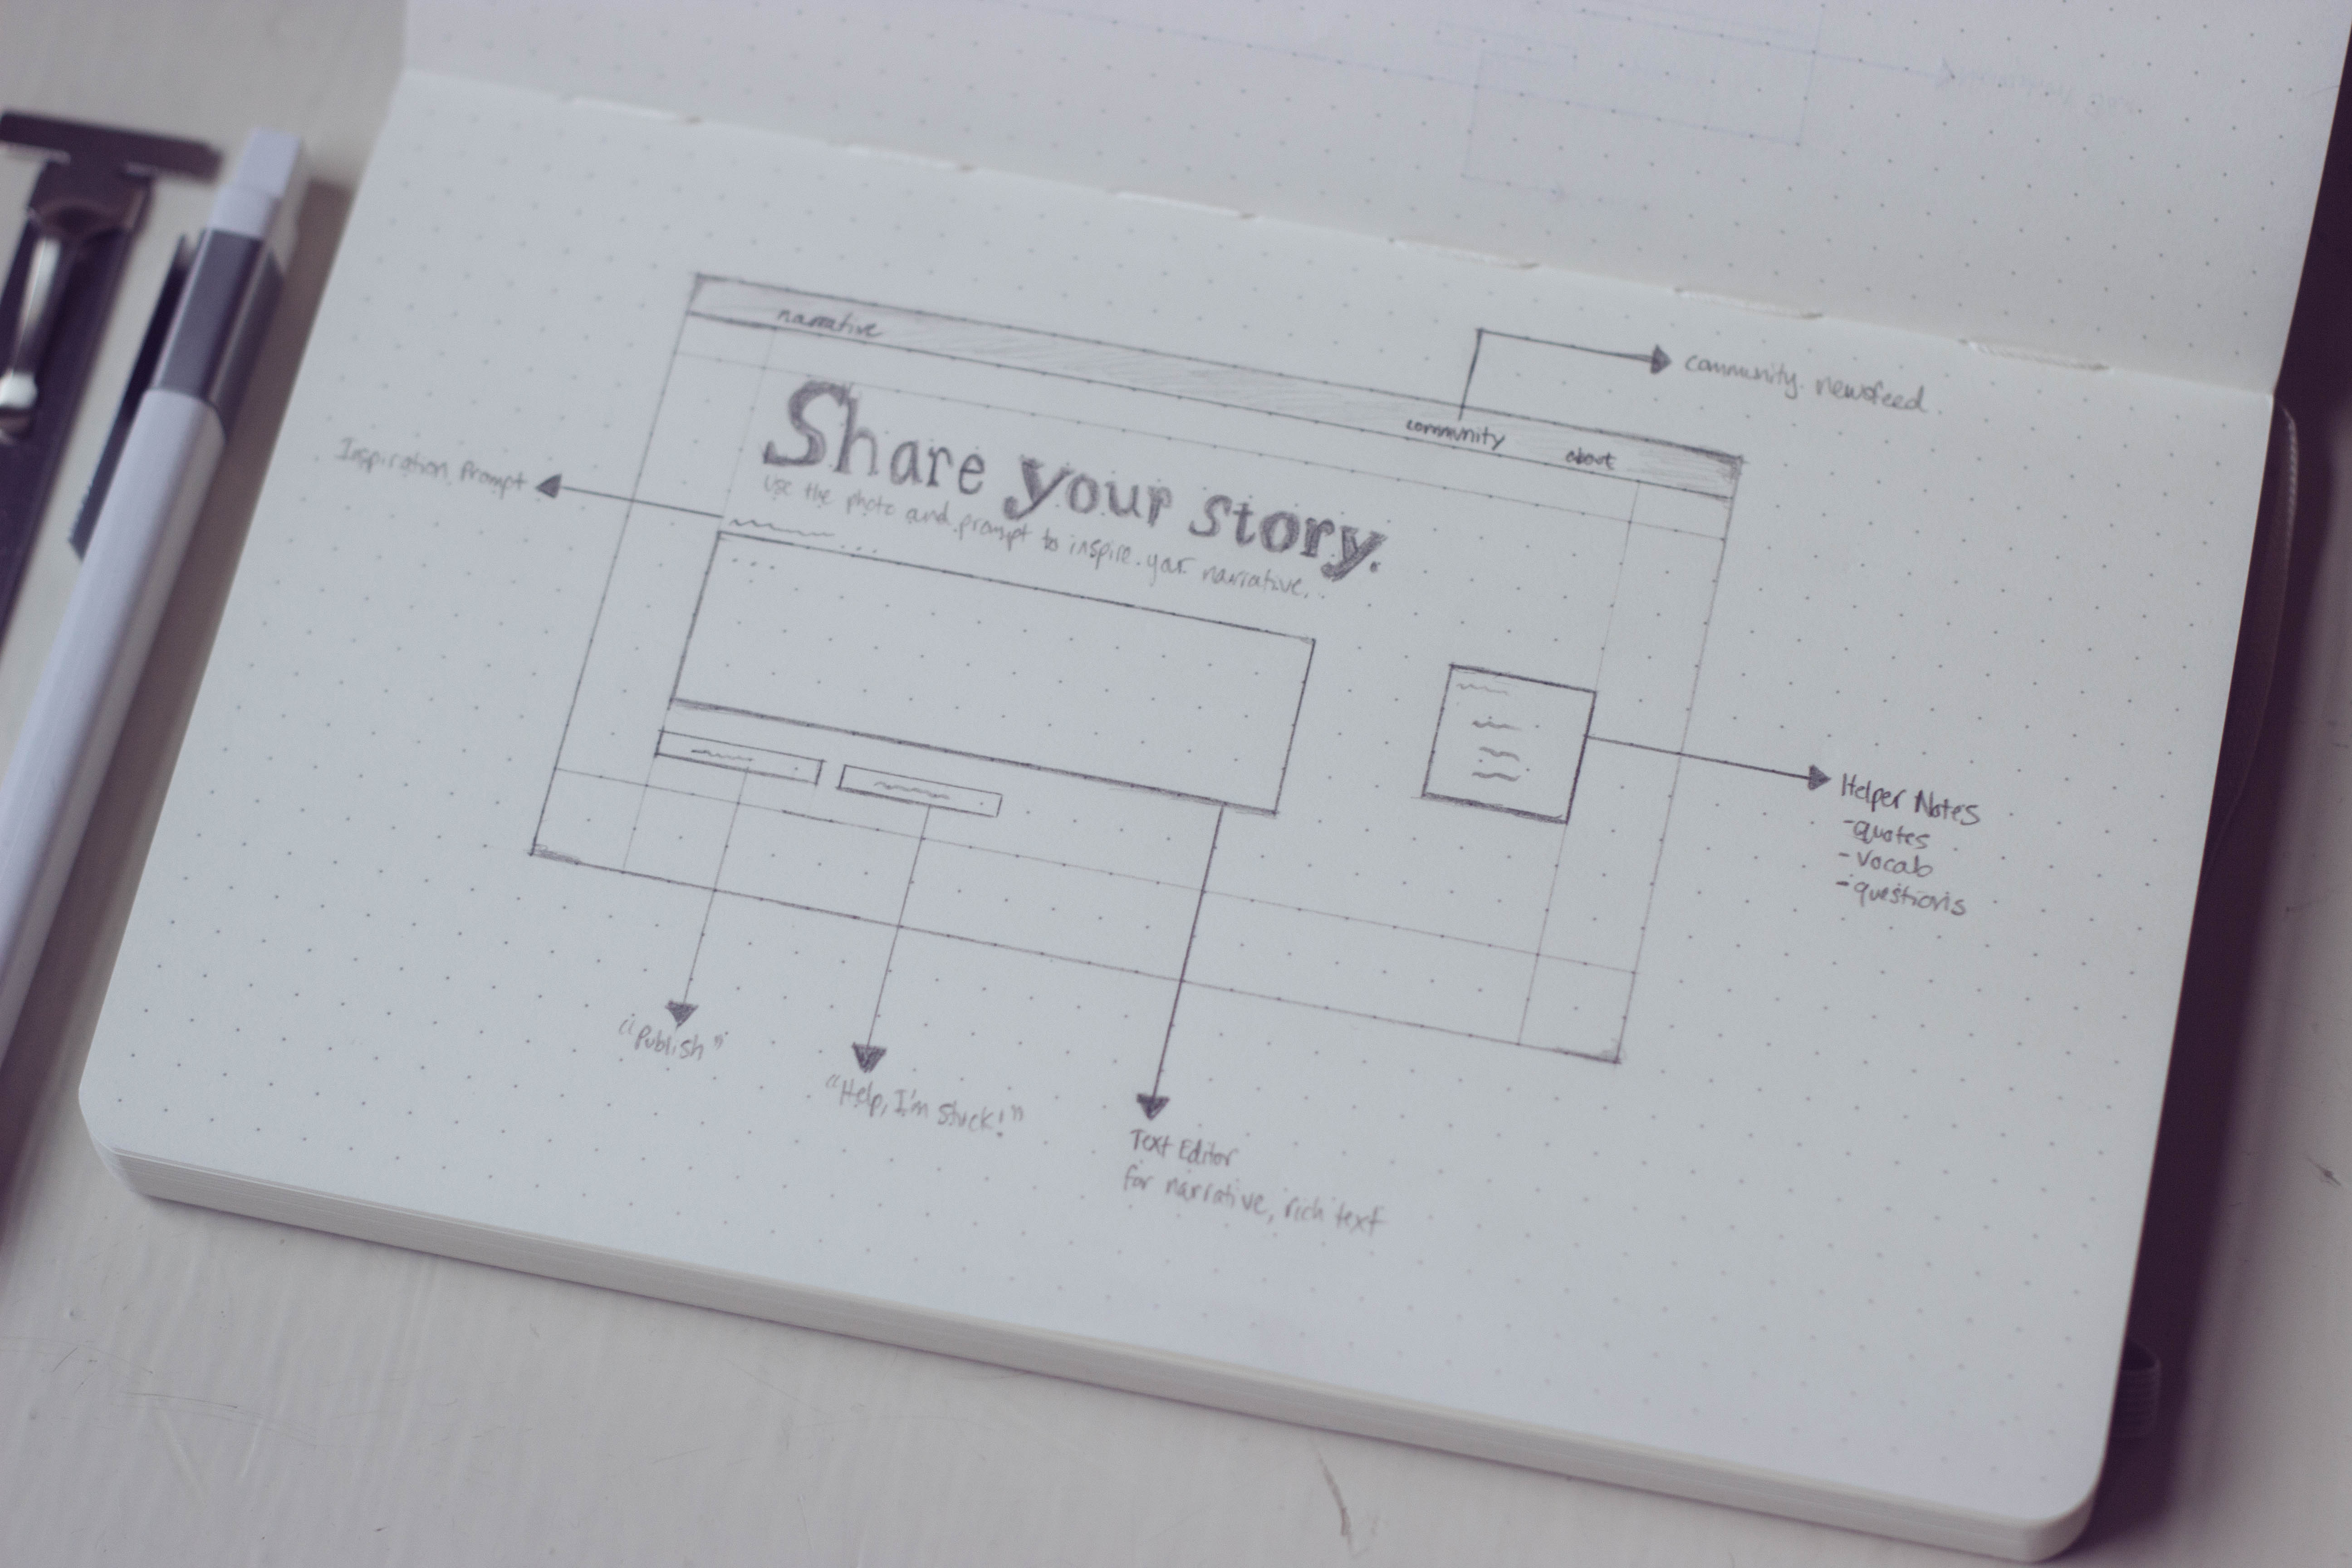 narrative
community about
community newsfeed
Share your story.
Use the photo and prompt to inspire your narrative.
Inspiration Prompt
Helper Notes
- quotes
- vocab
- questions
"Publish"
"Help, I'm stuck!"
Text Editor
for narrative, rich text